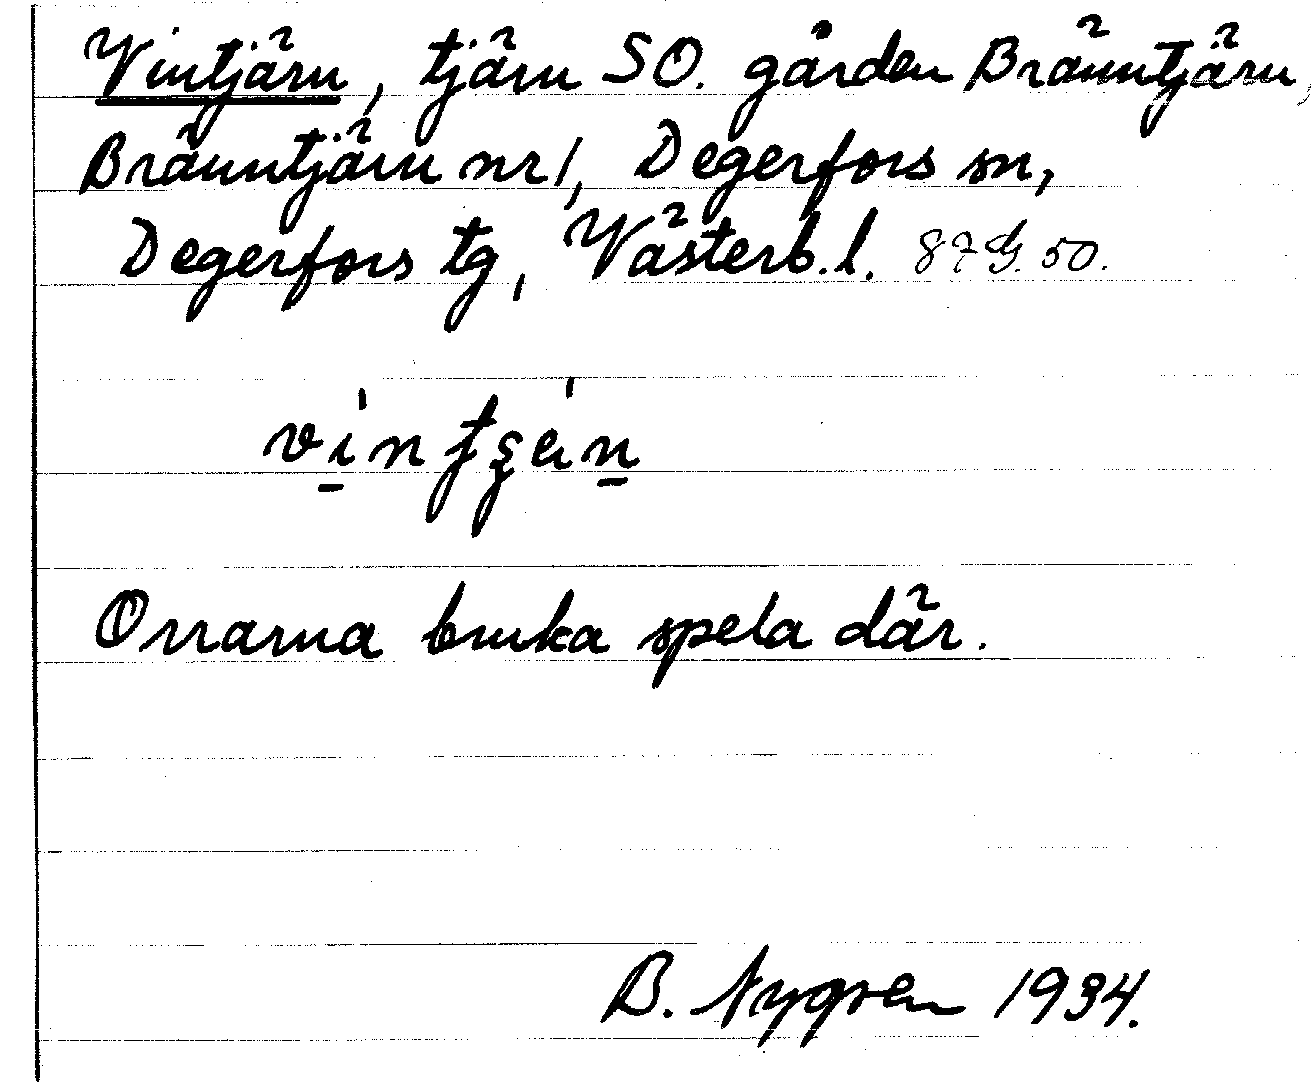 Vintjärn, tjärn SO. gården Bränntjärn,
Bränntjärn nr 1, Degerfors sn,
Degerfors tg, Västerb. l. 87 G. 50.
Orrarna bruka spela där.
B. Nygren 1934.